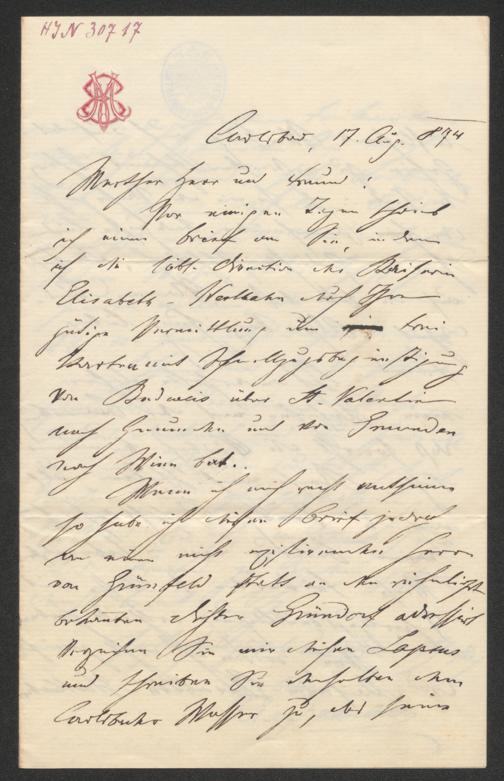 HIN 30717
Carlsbad, 17. Aug. 874
Werther Herr und Freund!
Vor einigen Tagen schrieb
ich einen Brief an Sie, in dem
ich die löbl. Direction der Kaiserin
Elisabeth-Westbahn durch Ihre
gütige Vermittlung um frei
Karten mit Schnellzugsbegünstigung
von Budweis über St. Valentin
nach Gmunden und von Gmunden
nach Wien bat.
Wenn ich mich recht entsinne
so habe ich diesen Brief jedoch
an einen nicht existirenden Herrn
von Grünfeld statt an den rühmlichst
bekannten Dichter Gründorf adressirt
Verzeihen Sie mir diesen Lapsus
und schreiben Sie denselben dem
Carlsbader Wasser zu, das seine